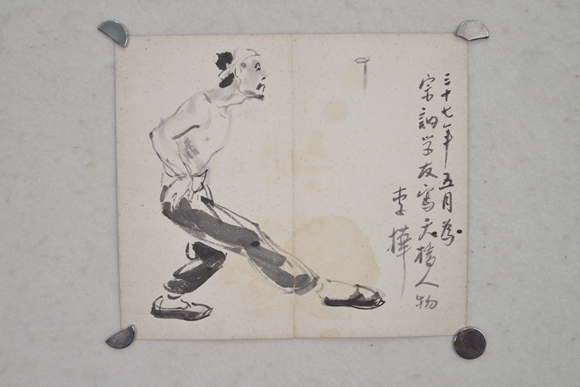 三十七年五月为
宗訥学友写天橋人物
李樺